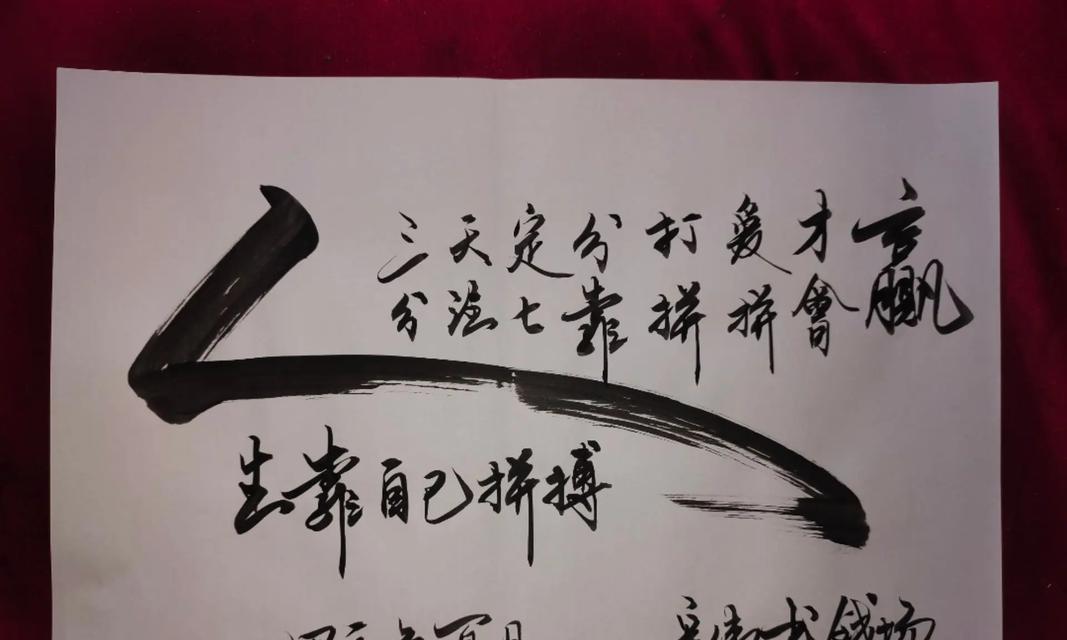 人
三分天注定七分靠打拼爱拼才會赢
生靠自己拼搏